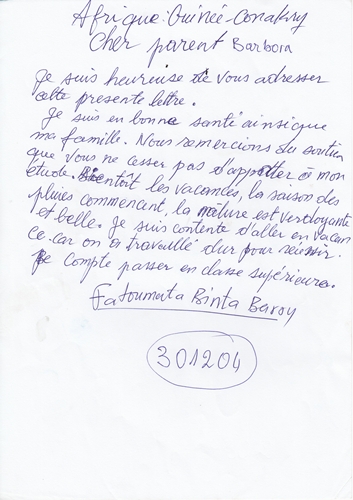 Afrique: Guinée-Conakry
Cher parent Barbora
Je suis heureuse de vous adresser
cette presente lettre.
Je suis en bonne santé ainsi que
ma famille. Nous remercions du soutien
que vous ne cesser pas d'apotter à mon
étude. Bientôt les vacances, la saison des
pluies commencent, la nature est verdoyante
et belle. Je suis contente d'aller en vacan
ce car on a travaillé dur pour réussir.
Je compte passer en classe supérieure.
Fatoumata Binta Barry
301204